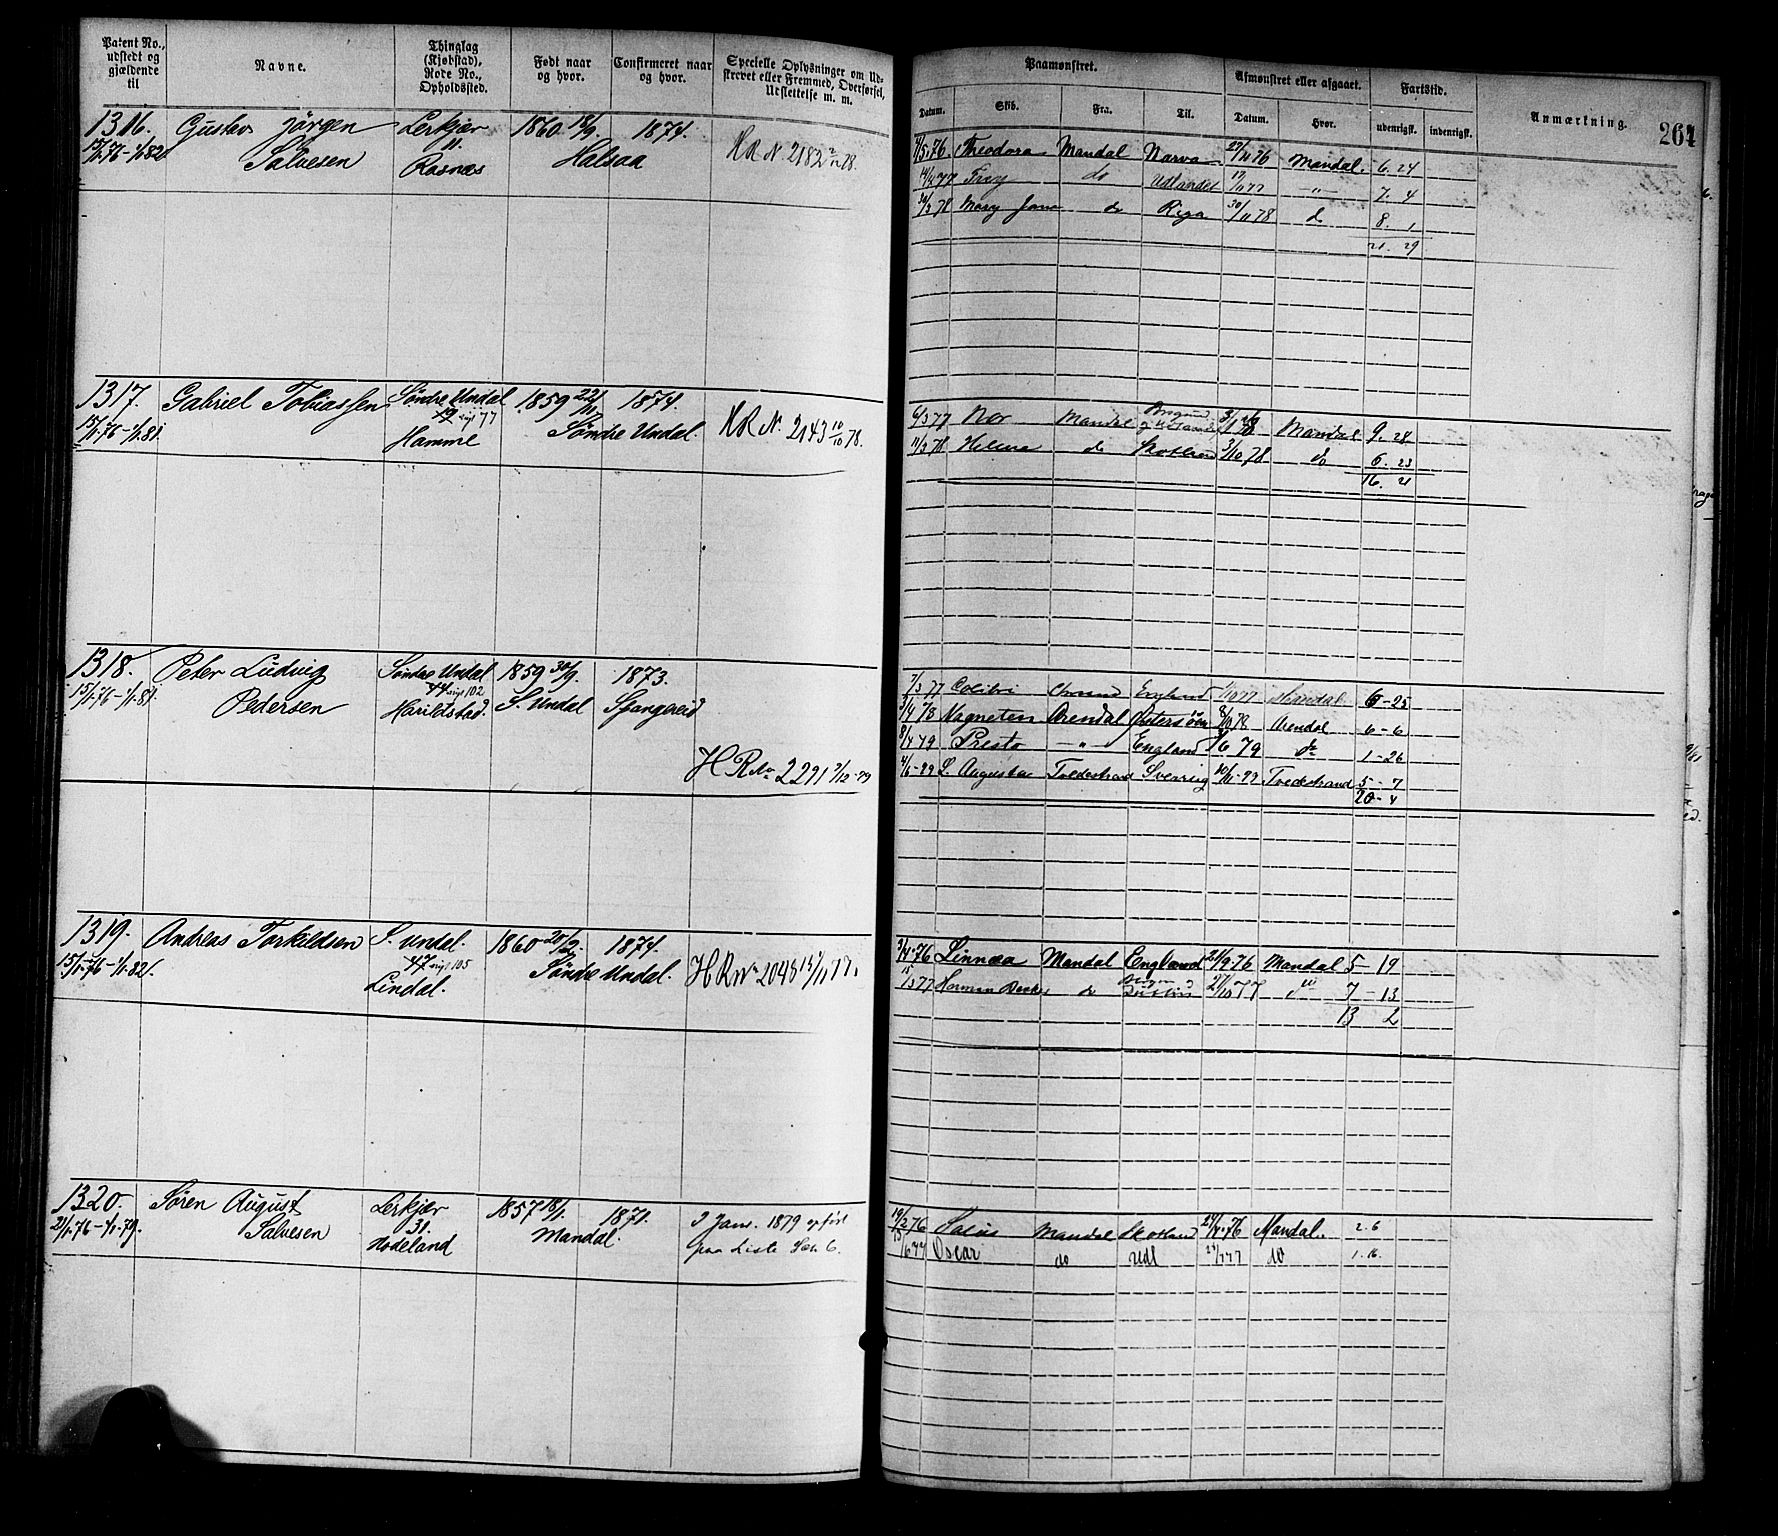 Patent No., udstedt og gjældende til
Navne.
Thinglag (Kjøbstad), Rode No., Opholdssted.
Født naar og hvor.
Confirmeret naar og hvor.
Specielle Oplysninger om Udskrevet eller Fremmed, Overførsel, Udslettelse m. m.
Paamønstret.
Datum.
Skib.
Fra.
Til.
Afmønstret eller afgaaet.
Datum.
Hvor.
Fartstid.
udenrigsk.
indenrigsk.
Anmærkning.
264
1316. Gustav Jörgen Lerkjær 1860 18/9. 1874.
15/1.76-1/1.82 Salvesen 11. Halsaa HR No 2182 78.
Rosnæs
/5.76. Theodora Mandal Narva 27/11 76 Mandal. 6. 24
77 Frey do Udlandet 77 -"- 7. 4
30/3 78 Mary Jane do Riga 30/11 78 do 8. 1
21. 29
1317. Gabriel Tobiassen Søndre Undal 1859 22/11 1874.
15/1.76-1/1.81. 19 77 Søndre Undal. HR No. 2143 10/10 78.
Hamme
6/3 77 Nor Mandal Mandal 9. 28
11/3 78 Helene do Skotland 3/10 78 do 6. 23
16. 21
1318. Peter Ludvig Søndre Undal 1859 30/9. 1873.
15/1.76-1/1.81. Pedersen 44 102 S. Undal Spangereid
Harildstad.
HR No 2291 /12-79
7/3 77 Colibri England 77 Mandal 6-25
/4 78 Magneten Arendal 8/10 78 Arendal 6-6
8/4 79 Presto -"- England /6 79 do 1-26
4/6-79 L. Augusta Tvedestrand Sverrig -79 Tvedestrand 5-7
20-4
1319. Andreas Torkildsen S. Undal. 1860 20/2. 1874.
15/1.76-1/1.82. 47 105 Søndre Undal. HR No 2048 15/11 77.
Lindal.
3/4.76 Linnæa Mandal England 21/9.76 Mandal 5-19
15/3 77 Herman do 27/10 77 do 7-13
13 2
1320. Sören August Lerkjær 1857 18/1. 1871.
21/1.76-1/1.79. Salvesen 31. Mandal. 2 Janr. 1879 opført
Hodeland paa Liste Sek 6.
19/2 76 Mandal Skotland 76 Mandal. 2. 6
15/6 77 Oscar do Udl 77 do 1. 16.